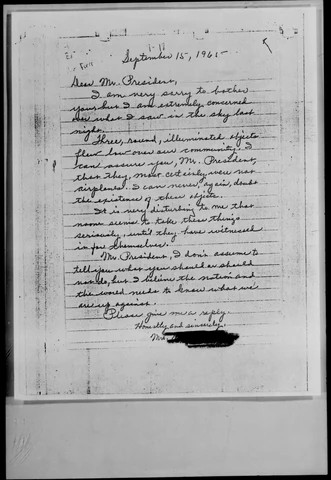 September 15, 1965
Dear Mr. President,
I am very sorry to bother
you, but I am extremely concerned
over what I saw in the sky last
night.
Three, round, illuminated objects
flew low over our community. I
can assure you, Mr. President,
that they, most certainly were not
airplanes. I can never, again, doubt
the existence of these objects.
It is very disturbing to me that
no one seems to take these things
seriously, until they have witnessed
it for themselves.
Mr. President, I don't assume to
tell you what you should or should
not do, but I believe the nation and
the world needs to know what we
are up against.
Please give me a reply.
Honestly and sincerely,
Mrs.